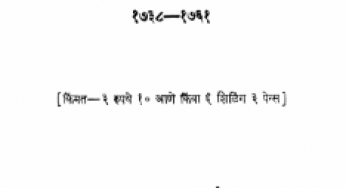 १७३८—१७६१
[किंमत— ३ रुपये १० आणे किंवा ६ शिलिंग ३ पेन्स]